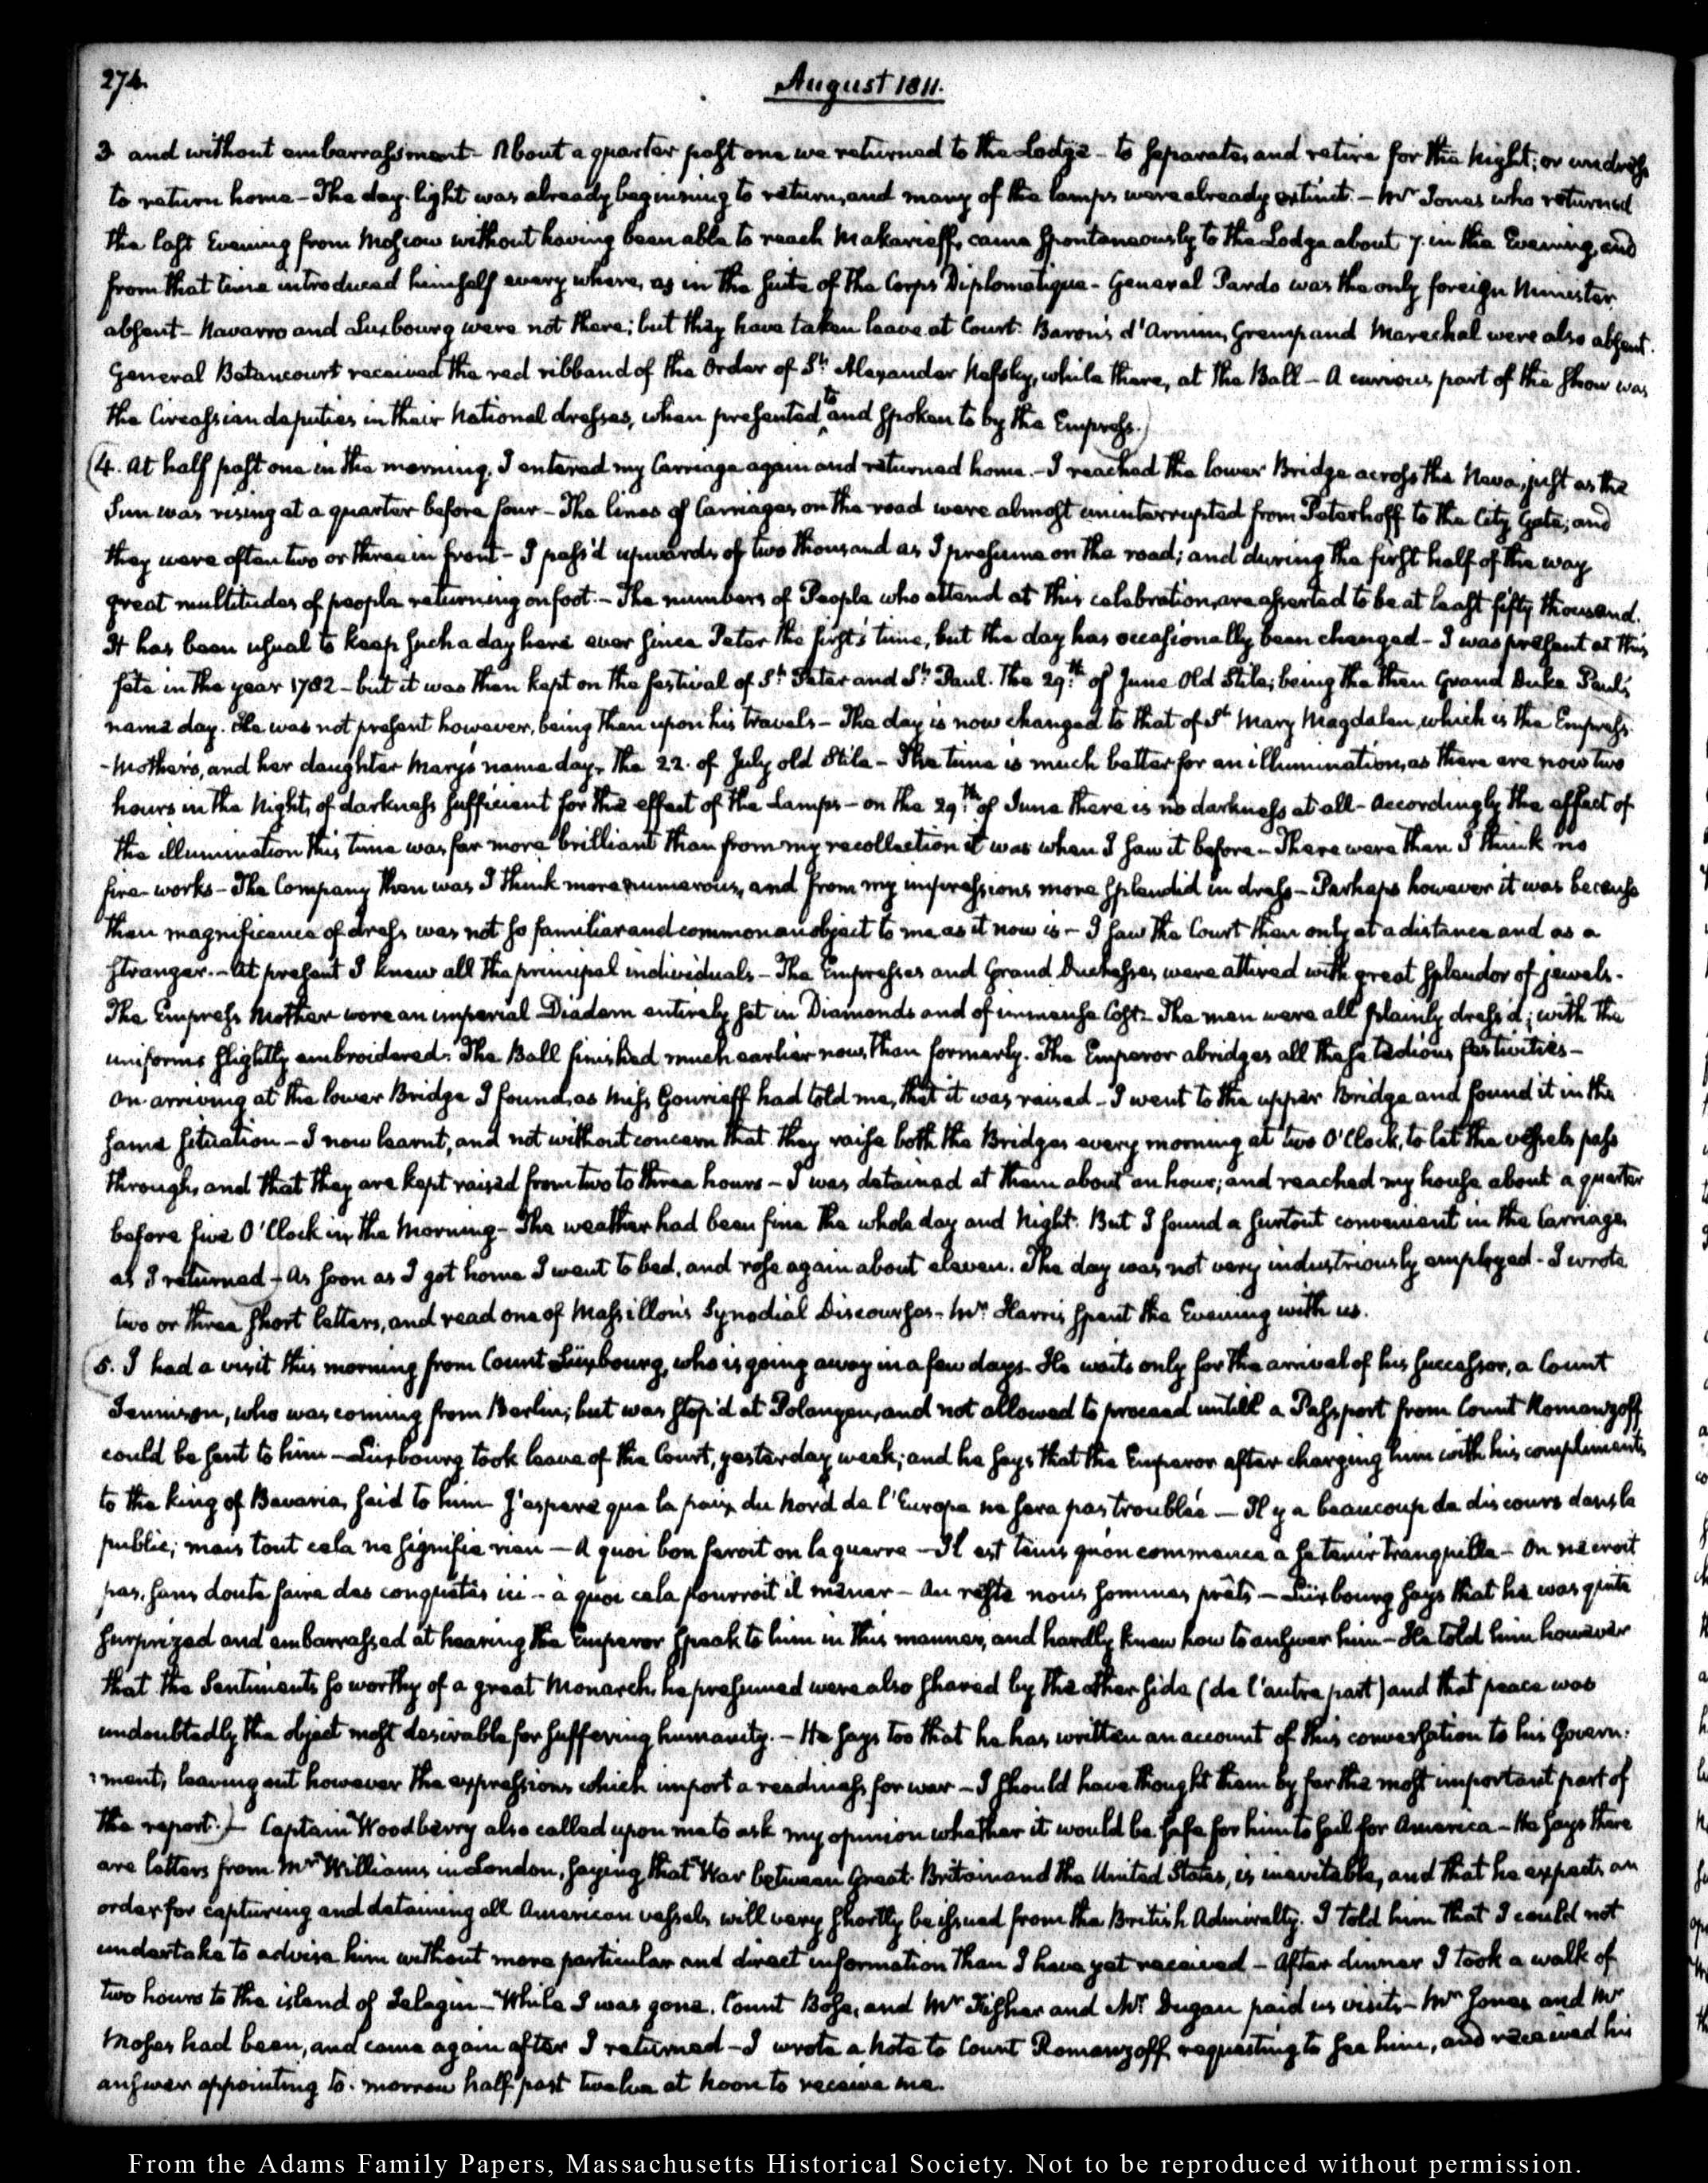 274.
August 1811.
3 and without embarrassment - About a quarter past one we returned to the Lodge - to separate, and retire for the Night; or undress
to return home - The day-light was already beginning to return, and many of the lamps were already extinct. - Mr. Jones who returned
the last Evening from Moscow without having been able to reach Makarieff, came spontaneously to the Lodge about 7. in the Evening, and
from that time introduced himself every where, as in the suite of the Corps Diplomatique - General Pardo was the only foreign Minister
absent - Navarro and Luxbourg were not there; but they have taken leave at Court. Barons d'Arnim, Gremp and Marechal were also absent.
General Betancourt received the red ribband of the Order of St. Alexander Nefsky, while there, at the Ball - A curious part of the show was
the Circassian deputies in their National dresses, when presented to and spoken to by the Empress.)
(4. At half past one in the morning, I entered my Carriage again and returned home. - I reached the lower Bridge across the Neva, just as the
Sun was rising at a quarter before four - The lines of Carriages on the road were almost uninterrupted from Peterhoff to the City Gate; and
they were often two or three in front - I pass'd upwards of two thousand as I presume on the road; and during the first half of the way
great multitudes of people returning on foot. - The numbers of People who attend at this celebration, are asserted to be at least fifty thousand.
It has been usual to keep such a day here ever since Peter the first's time, but the day has occasionally been changed - I was present at this
fete in the year 1782 - but it was then kept on the festival of St. Peter and St. Paul. The 29th. of June Old Stile; being the then Grand Duke Paul's
name day. He was not present however, being then upon his travels - The day is now changed to that of St Mary Magdalen, which is the Empress-
-Mother's, and her daughter Mary's name day, the 22. of July old Stile - The time is much better for an illumination, as there are now two
hours in the Night, of darkness sufficient for the effect of the Lamps - on the 29th. of June there is no darkness at all - Accordingly the effect of
the illumination this time was far more brilliant than from my recollection it was when I saw it before - There were then I think no
fire-works - The Company then was I think more numerous, and from my impressions more splendid in dress - Perhaps however it was because
then magnificence of dress was not so familiar and common an object to me as it now is - I saw the Court then only at a distance and as a
stranger. - At present I knew all the principal individuals - The Empresses and Grand Duchesses were attired with great splendor of jewels.
The Empress Mother wore an imperial Diadem entirely set in Diamonds and of immense Cost - The men were all plainly dress'd; with the
uniforms slightly embroidered. The Ball finished much earlier now, than formerly. The Emperor abridges all these tedious festivities -
On arriving at the lower Bridge I found, as Miss Gourieff had told me, that it was raised - I went to the upper Bridge and found it in the
same situation - I now learnt, and not without concern that they raise both the Bridges every morning at two O'Clock, to let the vessels pass
through, and that they are kept raised from two to three hours - I was detained at them about an hour; and reached my house about a quarter
before five O'Clock in the Morning - The weather had been fine the whole day and Night. But I found a surtout convenient in the Carriage,
as I returned - As soon as I got home I went to bed, and rose again about eleven. The day was not very industriously employed - I wrote
two or three short letters, and read one of Massillon's Synodial Discourses - Mr. Harris spent the Evening with us.
(5. I had a visit this morning from Count Lüxbourg, who is going away in a few days - He waits only for the arrival of his successor, a Count
Jennison, who was coming from Berlin; but was stop'd at Polangen, and not allowed to proceed untill a Passport from Count Romanzoff
could be sent to him - Lüxbourg took leave of the Court, yesterday week; and he says that the Emperor after charging him with his compliments
to the king of Bavaria, said to him - J'espere que la paix du Nord de l'Europe ne sera pas troublée - Il y a beaucoup de discours dans le
public; mais tout cela ne signifie rien - A quoi bon feroit on la guerre - Il est tems qu'on commence a se tenir tranquille - On ne croit
pas, sans doute faire des conquêtes ici - à quoi cela pourroit il mener - Au reste nous sommes prêts - Lüxbourg says that he was quite
surprized and embarrassed at hearing the Emperor speak to him in this manner, and hardly knew how to answer him - He told him however
that the Sentiments so worthy of a great Monarch, he presumed were also shared by the other side (de l'autre part) and that peace was
undoubtedly the object most desirable for suffering humanity. - He says too that he has written an account of this conversation to his Govern-
-ment, leaving out however the expressions which import a readiness for war - I should have thought them by far the most important part of
the report.) - Captain Woodberry also called upon me to ask my opinion whether it would be safe for him to sail for America - He says there
are letters from Mr. Williams in London, saying that War between Great-Britain and the United States, is inevitable, and that he expects an
order for capturing and detaining all American vessels will very shortly be issued from the British Admiralty. I told him that I could not
undertake to advise him without more particular and direct information than I have yet received - After dinner I took a walk of
two hours to the island of Jelagin - While I was gone, Count Bose, and Mr Fisher and Mr. Dugan paid us visits - Mr Jones and Mr
Moses had been, and came again after I returned - I wrote a Note to Count Romanzoff, requesting to see him, and received his
answer appointing to-morrow half past twelve at Noon to receive me.
From the Adams Family Papers, Massachusetts Historical Society. Not to be reproduced without permission.